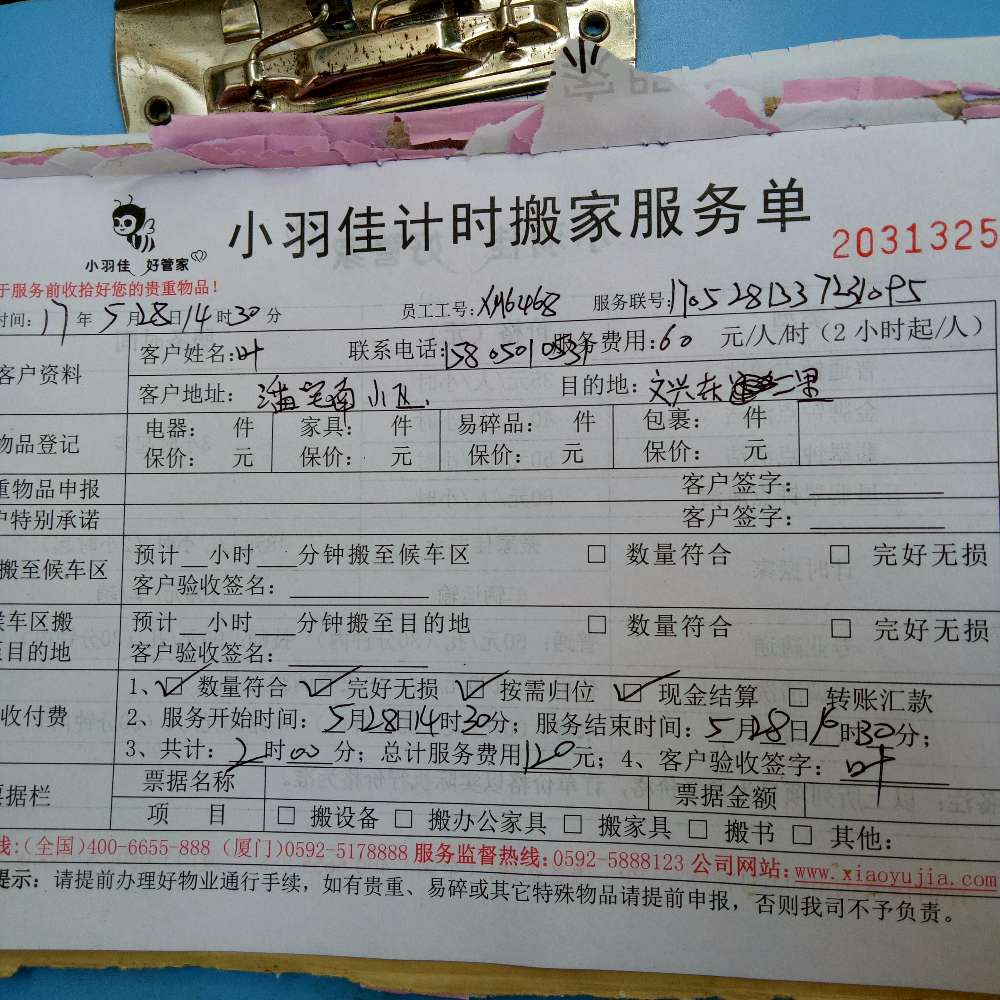 小羽佳计时搬家服务单
小羽佳 好管家
2031325
于服务前收拾好您的贵重物品！
时间：17年5月28日14时30分 员工工号：XM6468 服务联号：
客户资料
客户姓名：叶 联系电话： 服务费用：60 元/人/时（2小时起/人）
客户地址：潘宅南小区. 目的地：文兴东二里
物品登记
电器： 件 家具： 件 易碎品： 件 包裹： 件
保价： 元 保价： 元 保价： 元 保价： 元
重物品申报 客户签字：
户特别承诺 客户签字：
搬至候车区
预计__小时__分钟搬至候车区 □ 数量符合 □ 完好无损
客户验收签名：
候车区搬
至目的地
预计__小时__分钟搬至目的地 □ 数量符合 □ 完好无损
客户验收签名：
收付费
1、☑ 数量符合 ☑ 完好无损 ☑ 按需归位 ☑ 现金结算 □ 转账汇款
2、服务开始时间：5月28日14时30分；服务结束时间：5月28日16时30分；
3、共计：2时00分；总计服务费用120元；4、客户验收签字：叶
票据栏
票据名称 票据金额
项 目 □ 搬设备 □ 搬办公家具 □ 搬家具 □ 搬书 □ 其他：
线：（全国）400-6655-888（厦门）0592-5178888 服务监督热线：0592-5888123 公司网站：www.xiaoyujia.com
提示：请提前办理好物业通行手续，如有贵重、易碎或其它特殊物品请提前申报，否则我司不予负责。